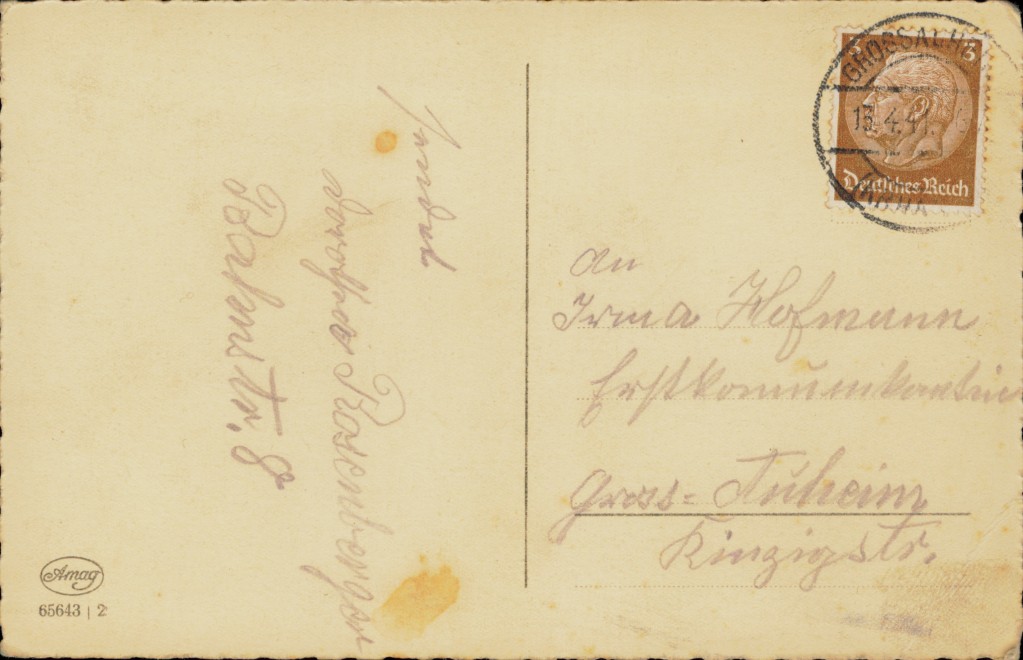 sendet
Dorothea Rosenberger
Bahnstr. 8
Amag
65643 | 2
GROSSAUHEIM
13.4.41.
3
Deutsches Reich
An
Irma Hofmann
Erstkomunikantin
Gross-Auheim
Kinzigstr.